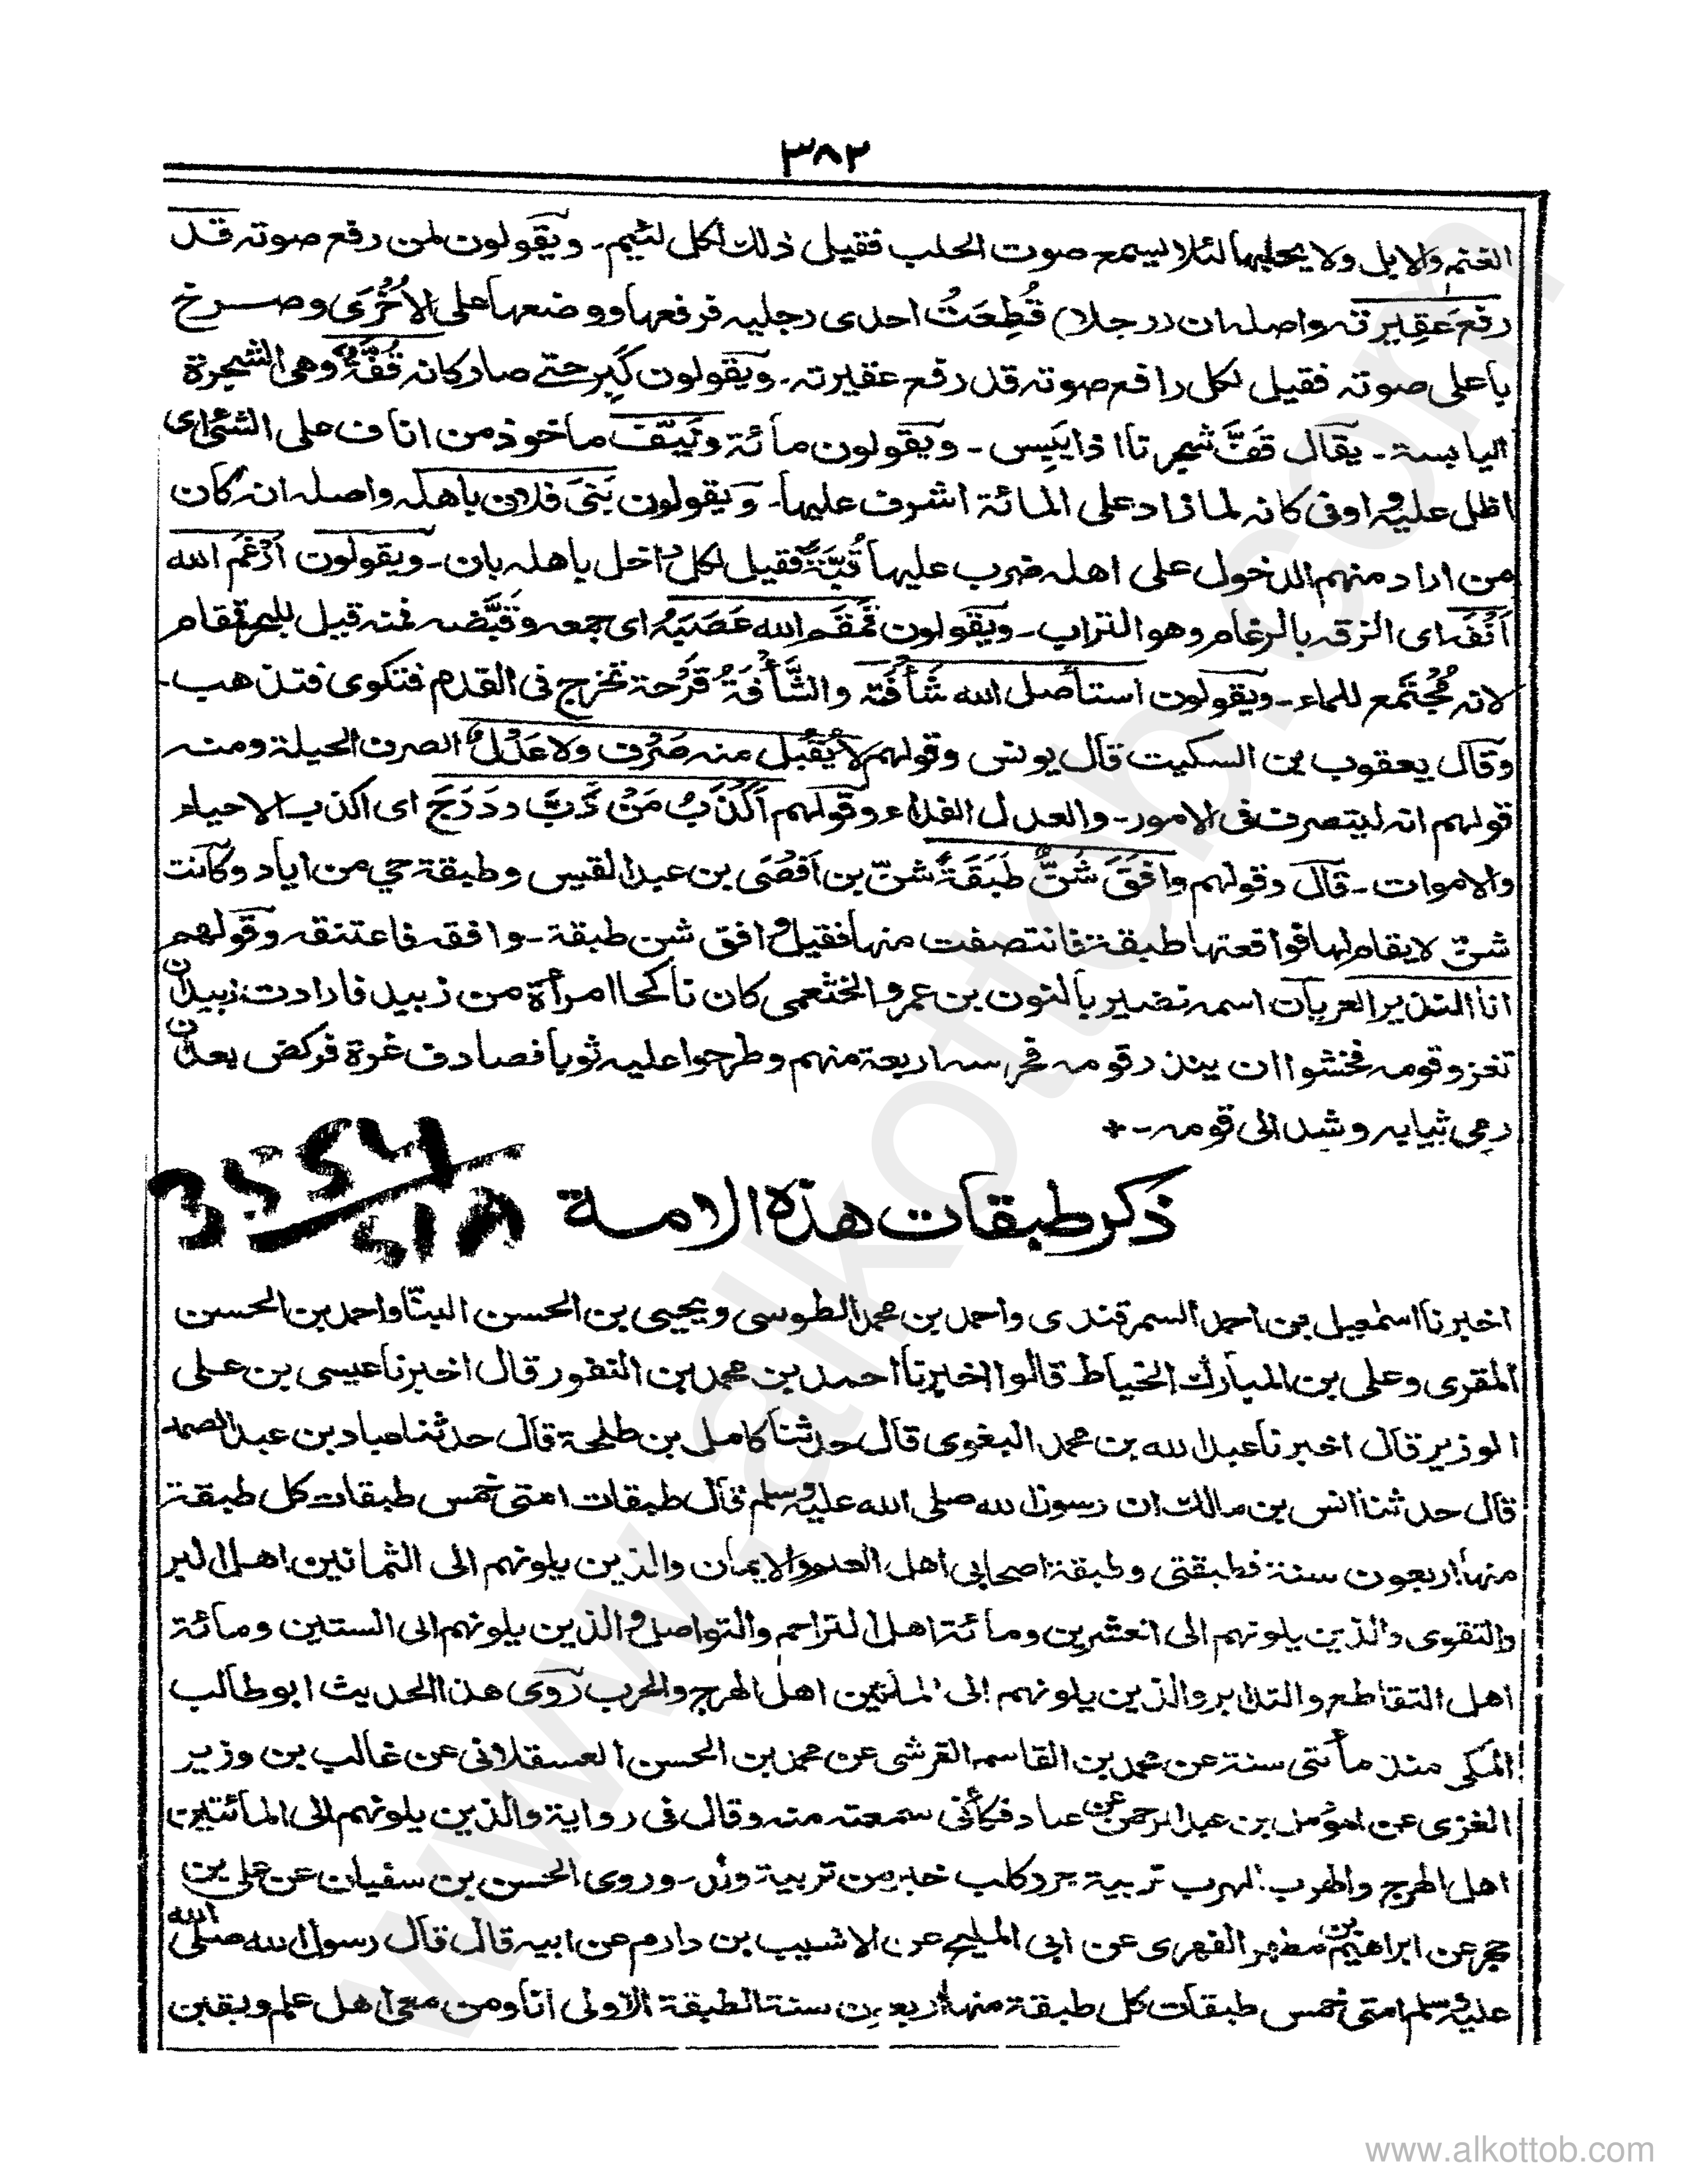 ٣٨٢
الغنم والابل ولا يحلبها لئلا يسمع صوت الحلب فقيل ذلك لكل لئيم ـ ويقولون لمن رفع صوته قد
رفع عَقِيرته واصله ان (رجلا) قُطِعَتْ احدى رجليه فرفعها ووضعها على الاُخْرَى وصرخ
باعلى صوته فقيل لكل رافع صوته قد رفع عقيرته ـ ويقولون كَبِرَ حتے صار كانه قُفَّةٌ وهى الشجرة
اليابسة ـ يقال قَفَّ شجرنا اذا يَبِس ـ ويقولون مائة ونَيِّف ماخوذ من اناف على الشئ اى
اظل عليه واوفى كانه لما زاد على المائة اشرف عليها ـ ويقولون بَنَى فلان باهله واصله انه كان
من اراد منهم الدخول على اهله ضرب عليها قُبَّةً فقيل لكل داخل باهله بان ـ ويقولون اَرْغَمَ الله
اَنْفَه اى الزقه بالرغام وهو التراب ـ ويقولون قَمْقَم الله عَصَبَهُ اى جمعه وقَبَّضه فمنه قيل للبحر قمقام
لانه مُجْتَمع للماء ـ ويقولون استأصل الله شَأْفَته والشَّأْفَةُ قَرْحة تخرج فى القدم فتكوى فتذهب ـ
وقال يعقوب بن السكيت قال يونس وقولهم لا يُقْبل منه صَرْف ولا عَدْلٌ الصرف الحيلة ومنه
قولهم انه ليتصرف فى الامور ـ والعدل الفداء وقولهم اَكْذَبُ مَنْ دَبَّ ودَرَجَ اى اكذب الاحياء
والاموات ـ قال وقولهم وافَقَ شَنٌّ طَبَقَةً شنّ بن اَفْصَى بن عبد القيس وطبقة حي من اياد وكانت
شنّ لا يقام لها فواقعتها طبقة فانتصفت منها فقيل وافق شن طبقة ـ وافقه فاعتنقه وقولهم
انا النذير العريان اسمه نضير بالنون بن عمرو الخثعمى كان ناكحا امرأة من زبيد فارادت زبيد ان
تغزو قومه فخشوا ان ينذر قومه فحرسه اربعة منهم وطرحوا عليه ثوبا فصادف غرة فركض بعد ان
رمى ثيابه وشد الى قومه ـ
ذكر طبقات هذه الامة
اخبرنا اسمعيل بن احمد السمرقندى واحمد بن محمد الطوسى ويحيى بن الحسن البنّا واحمد بن الحسن
المقرى وعلى بن المبارك الخياط قالوا اخبرنا احمد بن محمد بن النقور قال اخبرنا عيسى بن على
الوزير قال اخبرنا عبد الله بن محمد البغوى قال حدثنا كامل بن طلحة قال حدثنا عباد بن عبد الصمد
قال حدثنا انس بن مالك ان رسول الله صلى الله عليه وسلم قال طبقات امتى خمس طبقات كل طبقة
منها اربعون سنة فطبقتى وطبقة اصحابى اهل العلم والايمان والذين يلونهم الى الثمانين اهل البر
والتقوى والذين يلونهم الى العشرين ومائة اهل التراحم والتواصل والذين يلونهم الى الستين ومائة
اهل التقاطع والتدابر والذين يلونهم الى المائتين اهل الهرج والحرب روى هذا الحديث ابو طالب
المكى منذ مأتى سنة عن محمد بن القاسم القرشى عن محمد بن الحسن العسقلانى عن غالب بن وزير
الغزى عن المؤمل بن عبد الرحمن عن عباد فكأنى سمعته منه وقال فى رواية والذين يلونهم الى المائتين
اهل الهرج والهرب الهرب تربية جرو كلب خير من تربية ولد ـ وروى الحسن بن سفيان عن على بن
حجر عن ابراهيم بن مطهر الفهرى عن ابى المليح عن الاشيب بن دارم عن ابيه قال قال رسول الله صلى الله
عليه وسلم امتى خمس طبقات كل طبقة منها اربعين سنة الطبقة الاولى انا ومن معى اهل علم ويقين
www.alkottob.com